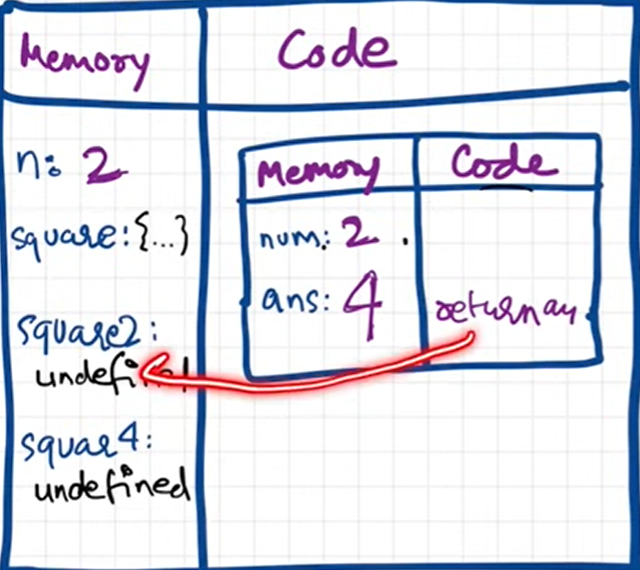 Memory
Code
n: 2
square: {...}
square2:
undefined
squar4:
undefined
Memory
Code
num: 2
ans: 4
return an